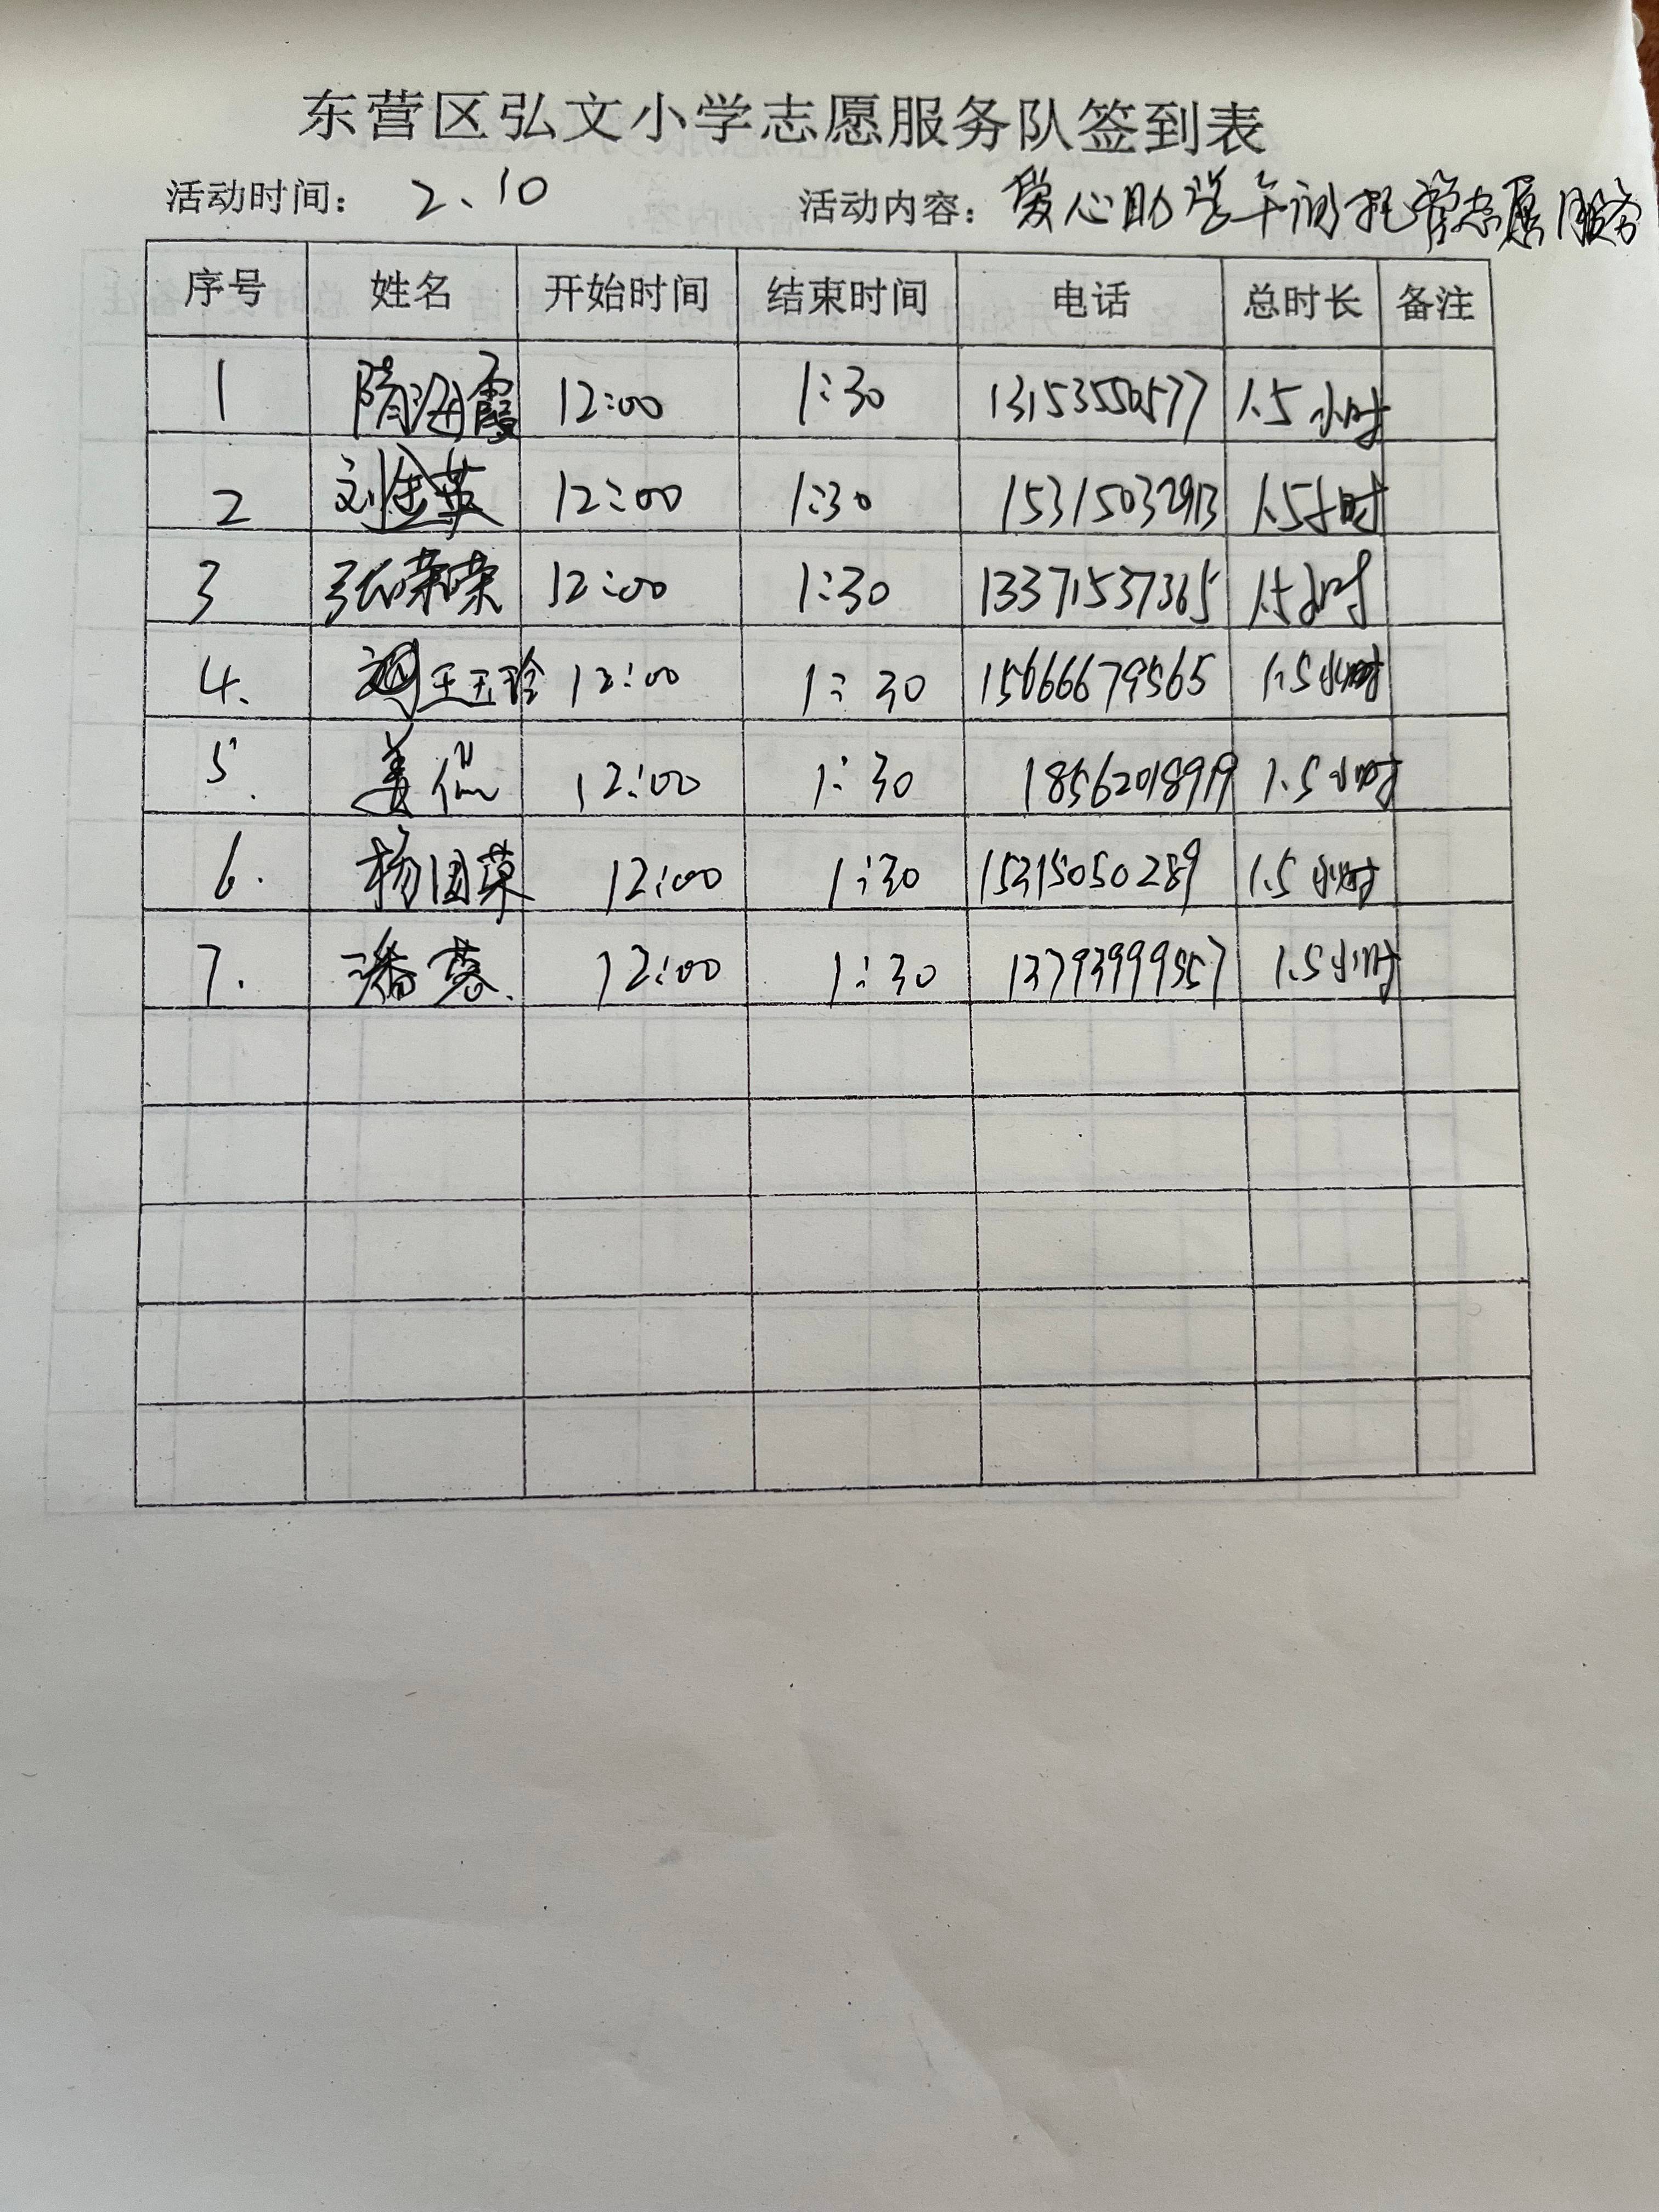 东营区弘文小学志愿服务队签到表
活动时间： 2、10 活动内容：爱心助学午间托管志愿服务
序号 姓名 开始时间 结束时间 电话 总时长 备注
1 隋海霞 12:00 1:30 13153550577 1.5小时
2 刘 英 12:00 1:30 15315032913 1.5小时
3 张荣荣 12:00 1:30 13371537365 1.5小时
4. 王玉玲 12:00 1:30 15666679565 1.5小时
5. 姜侃 12:00 1:30 18562018919 1.5小时
6. 杨国 12:00 1:30 15315050289 1.5小时
7. 潘慧 12:00 1:30 13793999557 1.5小时